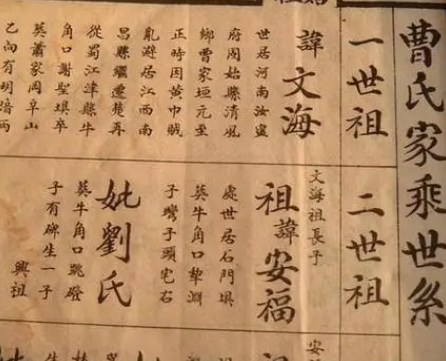 曹氏家乘世系
一世祖
諱文海
世居河南汝寧
府固始縣清風
鄉曹家垣元至
正時因黃巾賊
亂避居江西南
昌縣繼遷楚再
從蜀江津縣牛
角口謝聖埧卒
葬蕭家岡阜山
二世祖
文海祖長子
祖諱安福
處世居石門埧
葬牛角口犂淵
子彎子頭宅右
妣劉氏
葬牛角口跳磴
子有碑生一子
興祖